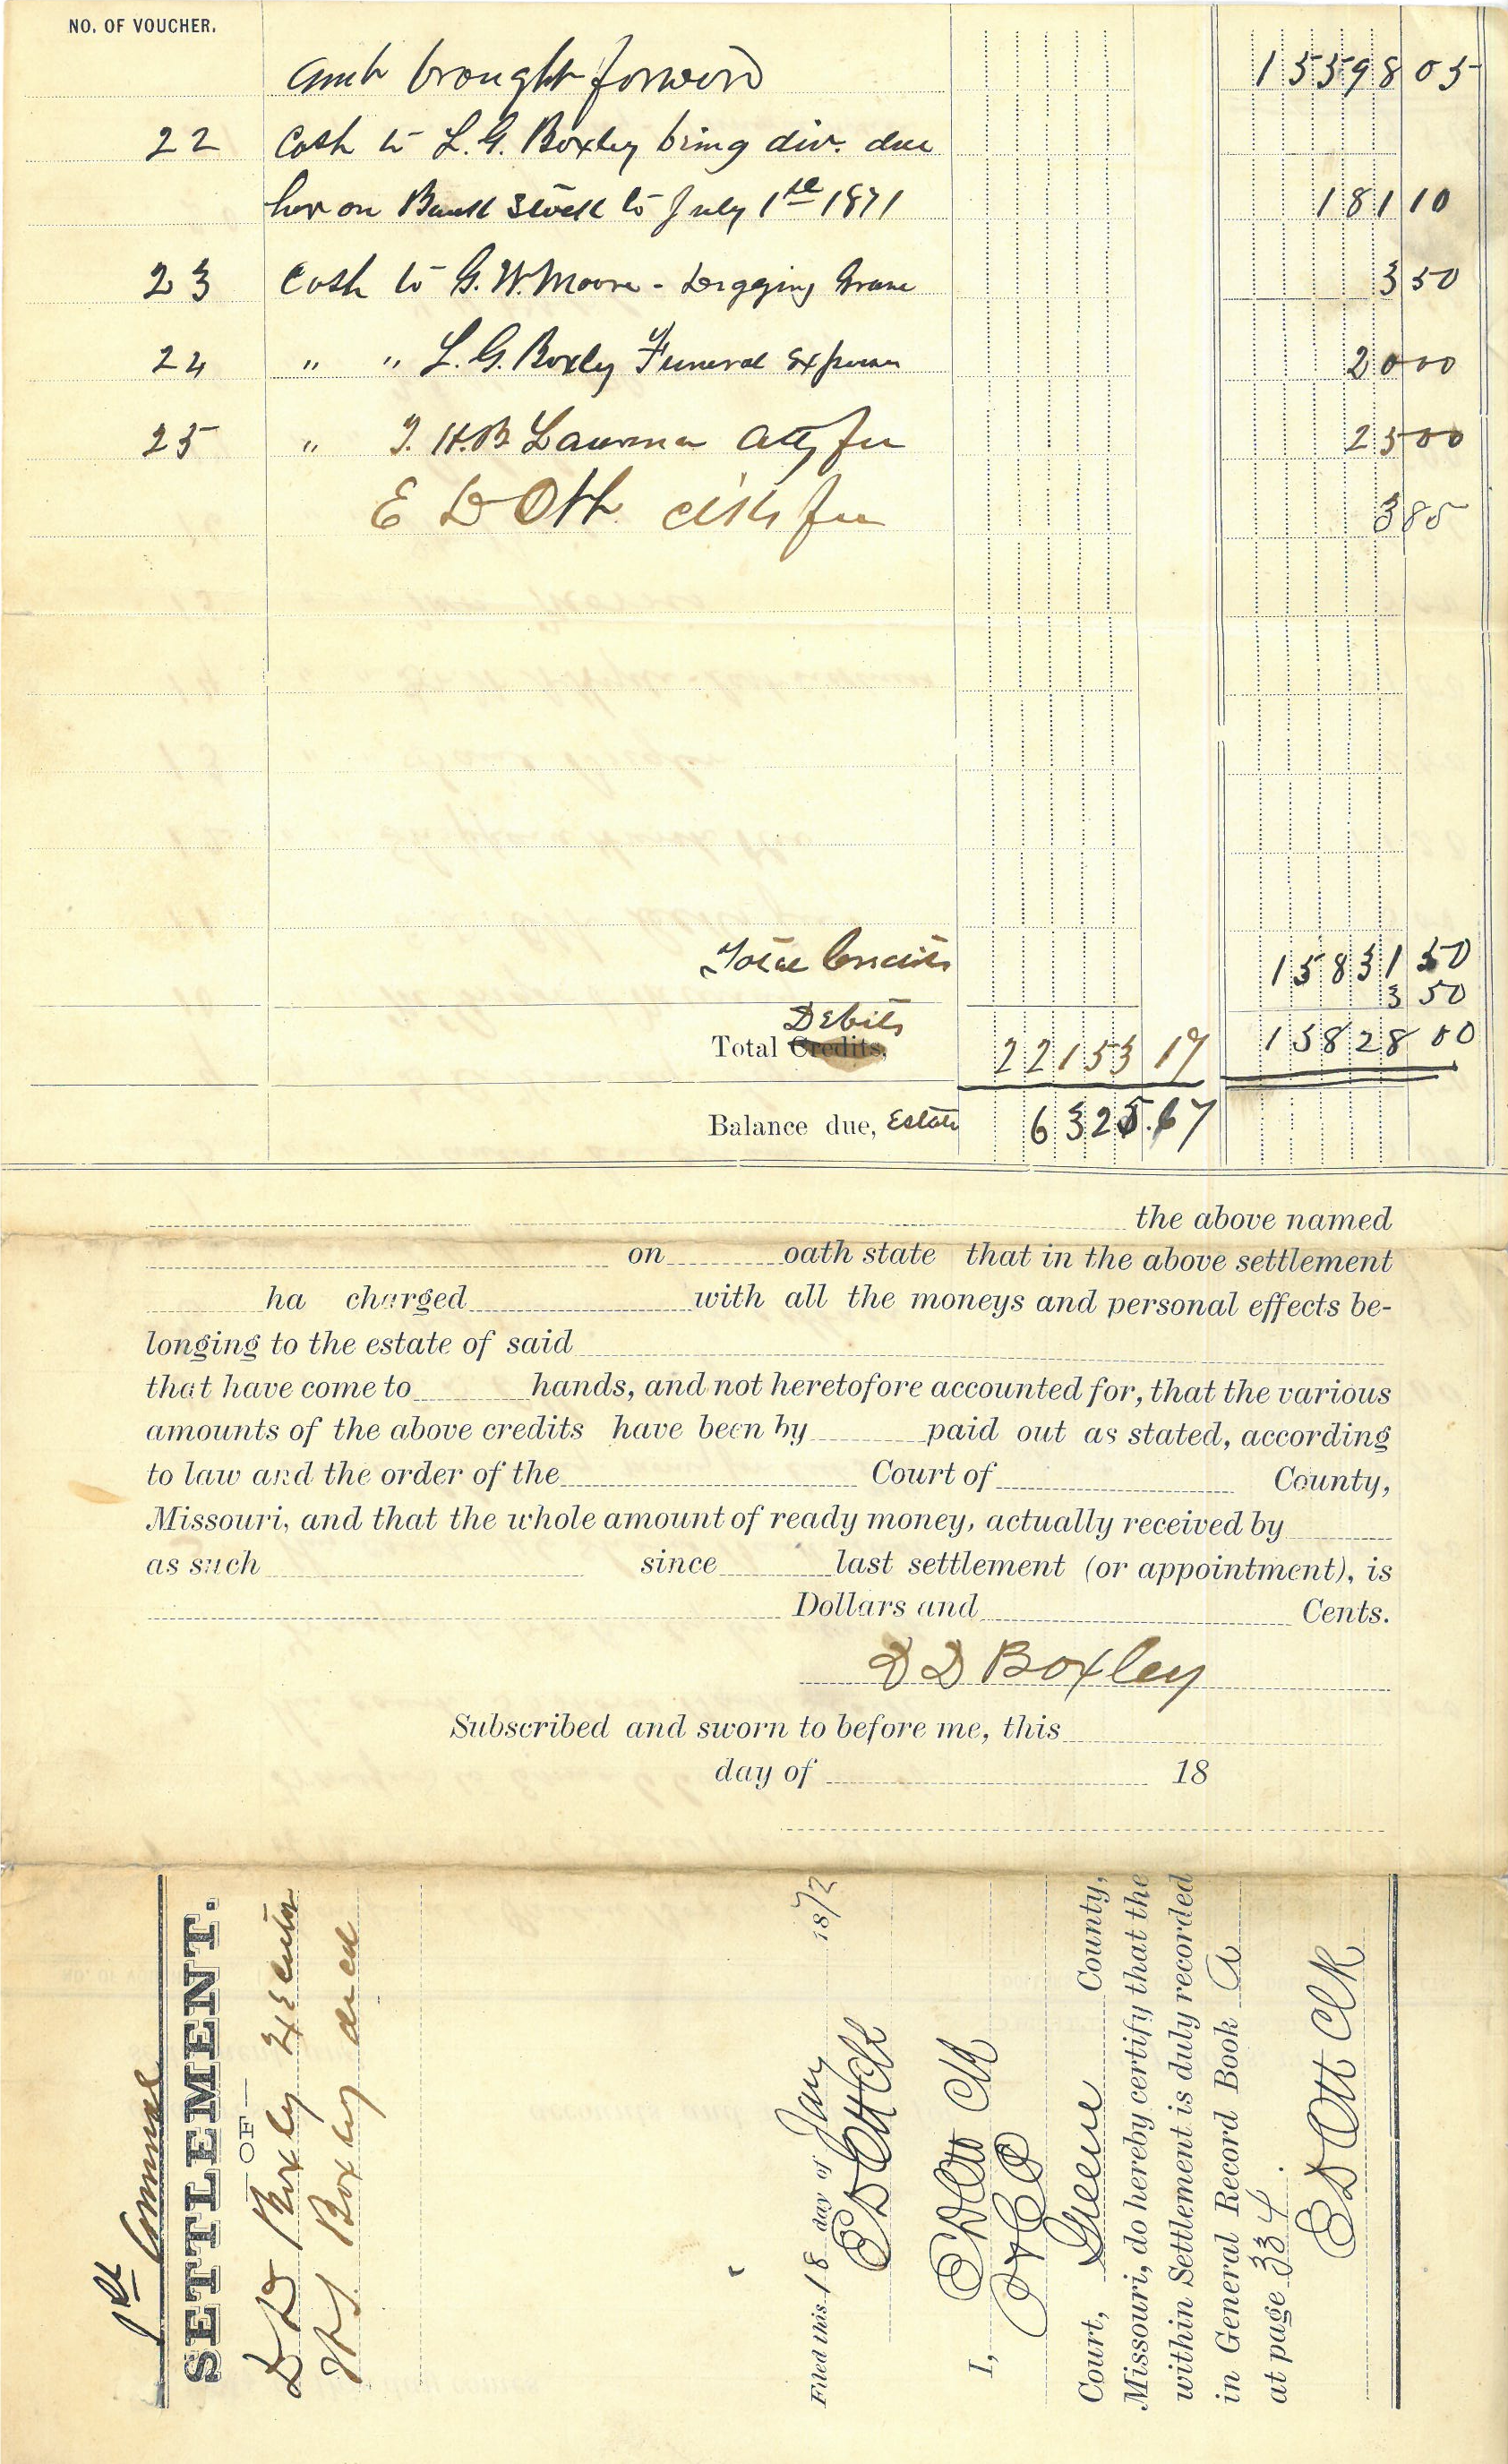 NO. OF VOUCHER.
Amt brought forward 15598 05
22 Cash to L. G. Boxley being div. due
her on Bank Stock to July 1st 1871 181 10
23 Cash to G. W. Moore - Digging Grave 3 50
24 " " L. G. Boxley Funeral Expenses 20 00
25 " J. H. B. Lawrence Atty fee 25 00
E D Ott clks fee 3 85
Total Credits 15831 50
3 50
Total Debits 22153 17 15828 00
Balance due, Estate 6325.67
the above named
on oath state that in the above settlement
ha charged with all the moneys and personal effects be-
longing to the estate of said
that have come to hands, and not heretofore accounted for, that the various
amounts of the above credits have been by paid out as stated, according
to law and the order of the Court of County,
Missouri, and that the whole amount of ready money, actually received by
as such since last settlement (or appointment), is
Dollars and Cents.
D D Boxley
Subscribed and sworn to before me, this
day of 18
1st Annual
SETTLEMENT.
—OF—
D D Boxly Executor
Boxley decd
Filed this 18 day of Jany 1872
E D Ott Clk
I, E D Ott Clk
Court, Greene County,
Missouri, do hereby certify that the
within Settlement is duly recorded
in General Record Book A
at page 334.
E D Ott Clk